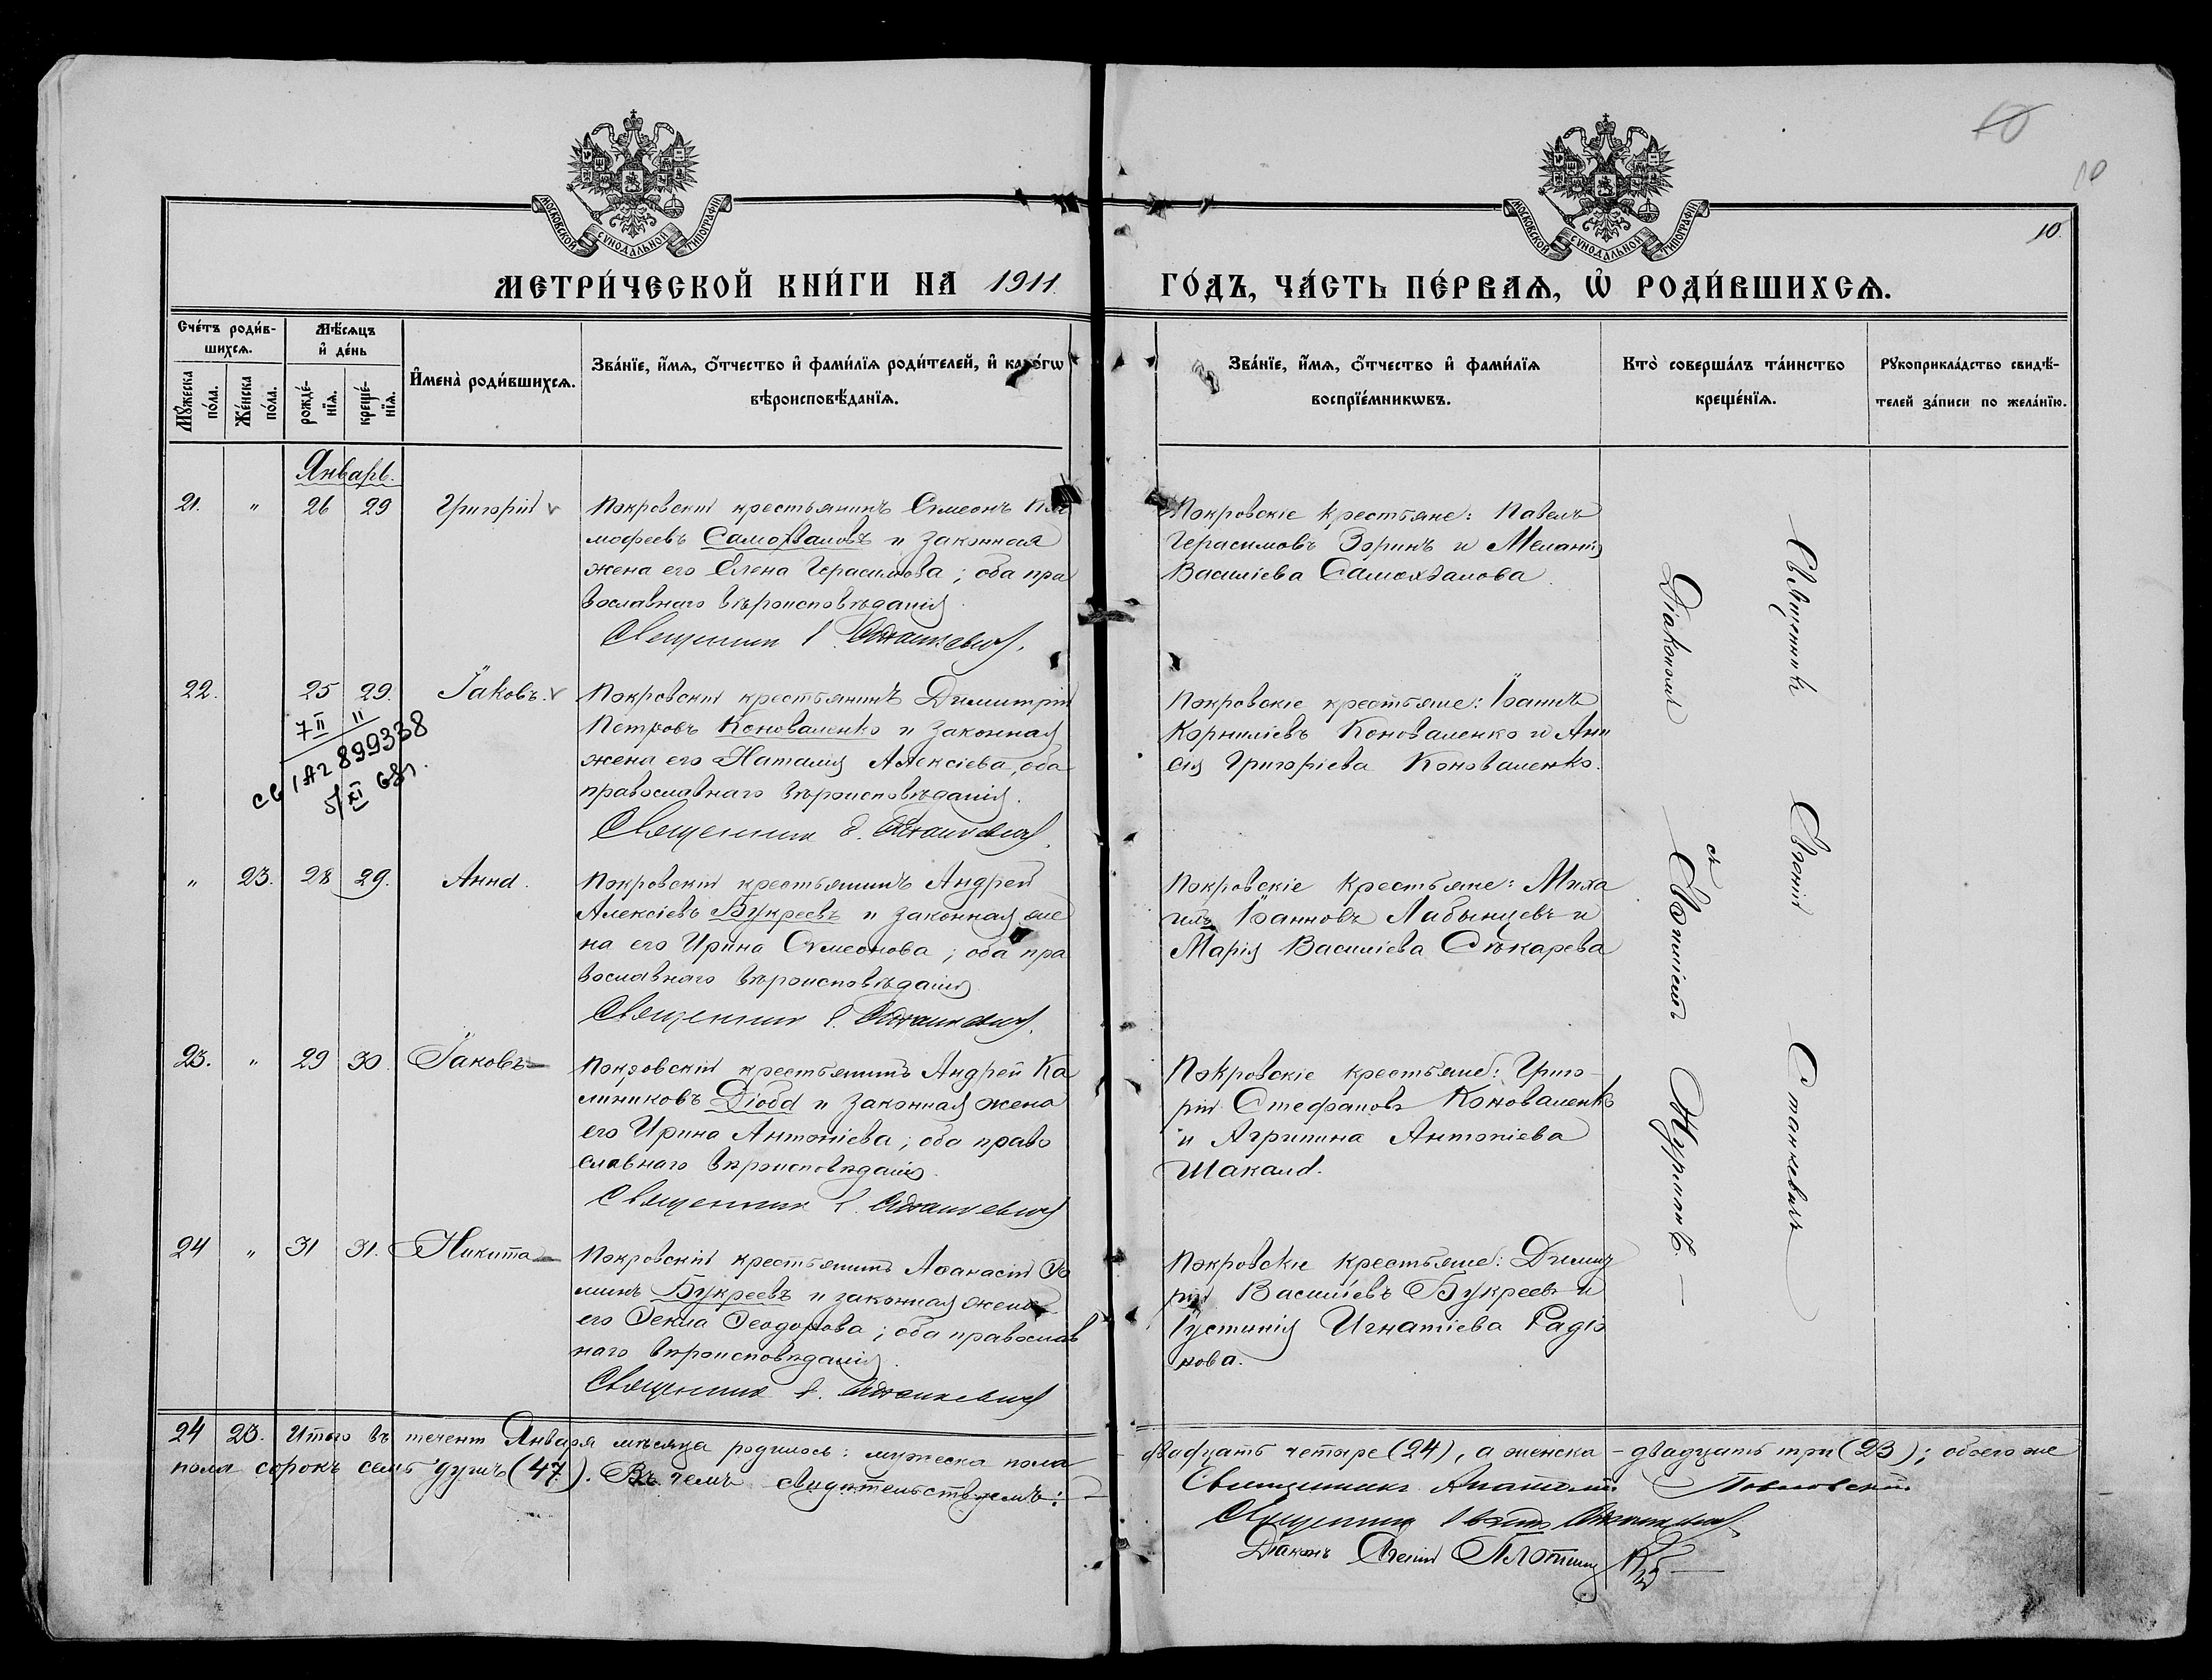 10
10
МОСКОВСКОЙ СѴНОДАЛЬНОЙ ТИПОГРАФІИ
МОСКОВСКОЙ СѴНОДАЛЬНОЙ ТИПОГРАФІИ
10.
МЕТРИ́ЧЕСКОЙ КНИ́ГИ НА 1911
ГО́ДЪ, ЧА́СТЬ ПЕ́РВАѦ, Ѡ҆ РОДИ́ВШИХСѦ.
Сче́тъ роди́в-
шихсѧ.
Мꙋ́жеска
по́ла.
Же́нска
по́ла.
Мѣ́сѧцъ
и҆ де́нь
рожде́-
нїѧ.
креще́-
нїѧ.
И҆мена̀ роди́вшихсѧ.
Зва́нїе, и҆́мѧ, ѻ҆́тчество и҆ фами́лїѧ роди́телей, и҆ како́гѡ
вѣроисповѣ́данїѧ.
Зва́нїе, и҆́мѧ, ѻ҆́тчество и҆ фами́лїѧ
воспрїе́мникѡвъ.
Кто̀ соверша́лъ та́инство
креще́нїѧ.
Рꙋкоприкла́дство свидѣ́-
телей за́писи по жела́нїю.
Январь.
21. " 26 29 Григорій
Покровскій крестьянинъ Симеонъ
мофеевъ Самохваловъ и законная
жена его Елена Герасимова; оба пра
вославнаго вѣроисповѣданія.
Священник Е. Станкевич.
Покровскіе крестьяне: Павелъ
Герасимовъ Зоринъ и Меланія
Василіева Самохвалова.
22. 25 29. Іаковъ.
7 II II
св 1 А2 899338
5/XI 68г.
Покровскій крестьянинъ Димитрій
Петровъ Коноваленко и законная
жена его Наталія Алексіева, оба
православнаго вѣроисповѣданія.
Священник Е. Станкевич.
Покровскіе крестьяне: Іоаннъ
Корниліевъ Коноваленко и Ани
сія Григоріева Коноваленко.
" 23. 28 29. Анна.
Покровскій крестьянинъ Андрей
Алексіевъ Букреевъ и законная же
на его Ирина Симеонова; оба пра
вославнаго вѣроисповѣданія
Священник Е. Станкевич.
Покровскіе крестьяне: Миха
илъ Іоанновъ Лабынцевъ и
Марія Василіева Сѣкарева
23. " 29 30. Іаковъ
Покровскій крестьянинъ Андрей Ка
линиковъ Діоба и законная жена
его Ирина Антоніева; оба право
славнаго вѣроисповѣданія.
Священник Е. Станкевич
Покровскіе крестьяне: Григо-
рій Стефановъ Коноваленко
и Агрипина Антоніева
Шакала.
24 " 31 31. Никита
Покровскій крестьянинъ Аѳанасій Ѳо
минъ Букреевъ и законная жена
его Ѳекла Ѳеодорова; оба православ
наго вѣроисповѣданія.
Священник Е. Станкевич
Покровскіе крестьяне: Димит
рій Василіевъ Букреевъ и
Іустинія Игнатіева Радіо
нова.
Священникъ Евгеній Станкевичъ
Діакономъ съ
24 23. Итого въ теченіи Января мѣсяца родилось: мужеска пола
двадцать четыре (24), а женска - двадцать три (23); обоего же
пола сорокъ семь душъ (47). Въ чемъ свидѣтельствуемъ:
Священникъ Анатолій Павловскій
Священник Евгеній Станкевич
Діаконъ